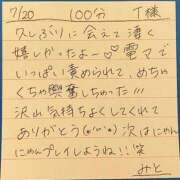 7/20 100分 T様
久しぶりに会えて凄く
嬉しかったよー♡電マで
いっぱい責められて、めちゃ
くちゃ興奮しちゃった!!!
沢山気持ちよくしてくれて
ありがとう(*'ω'*) 次はにゃん
にゃんプレイしようね!!笑
みと